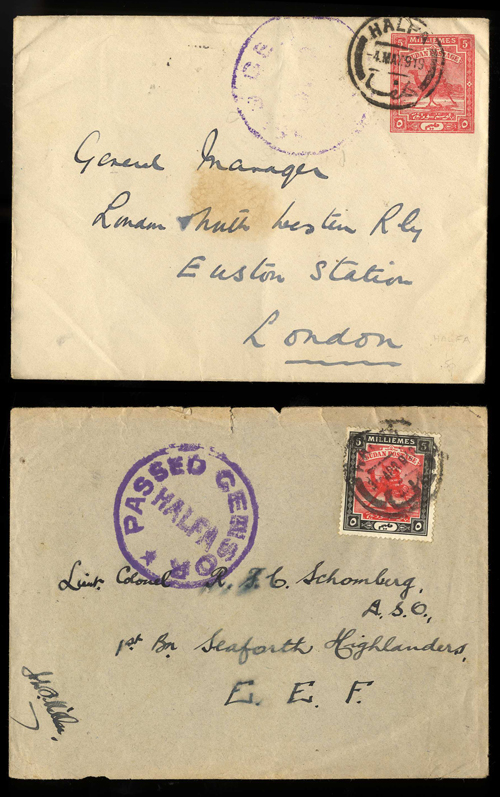 HALFA
5 MILLIEMES 5
General Manager
London North Western Rly
Euston Station
London
HALFA
PASSED CENSOR
HALFA
5 MILLIEMES 5
Lieut. Colonel R. J. C. Schomberg,
D.S.O.,
1st Bn. Seaforth Highlanders,
E. E. F.